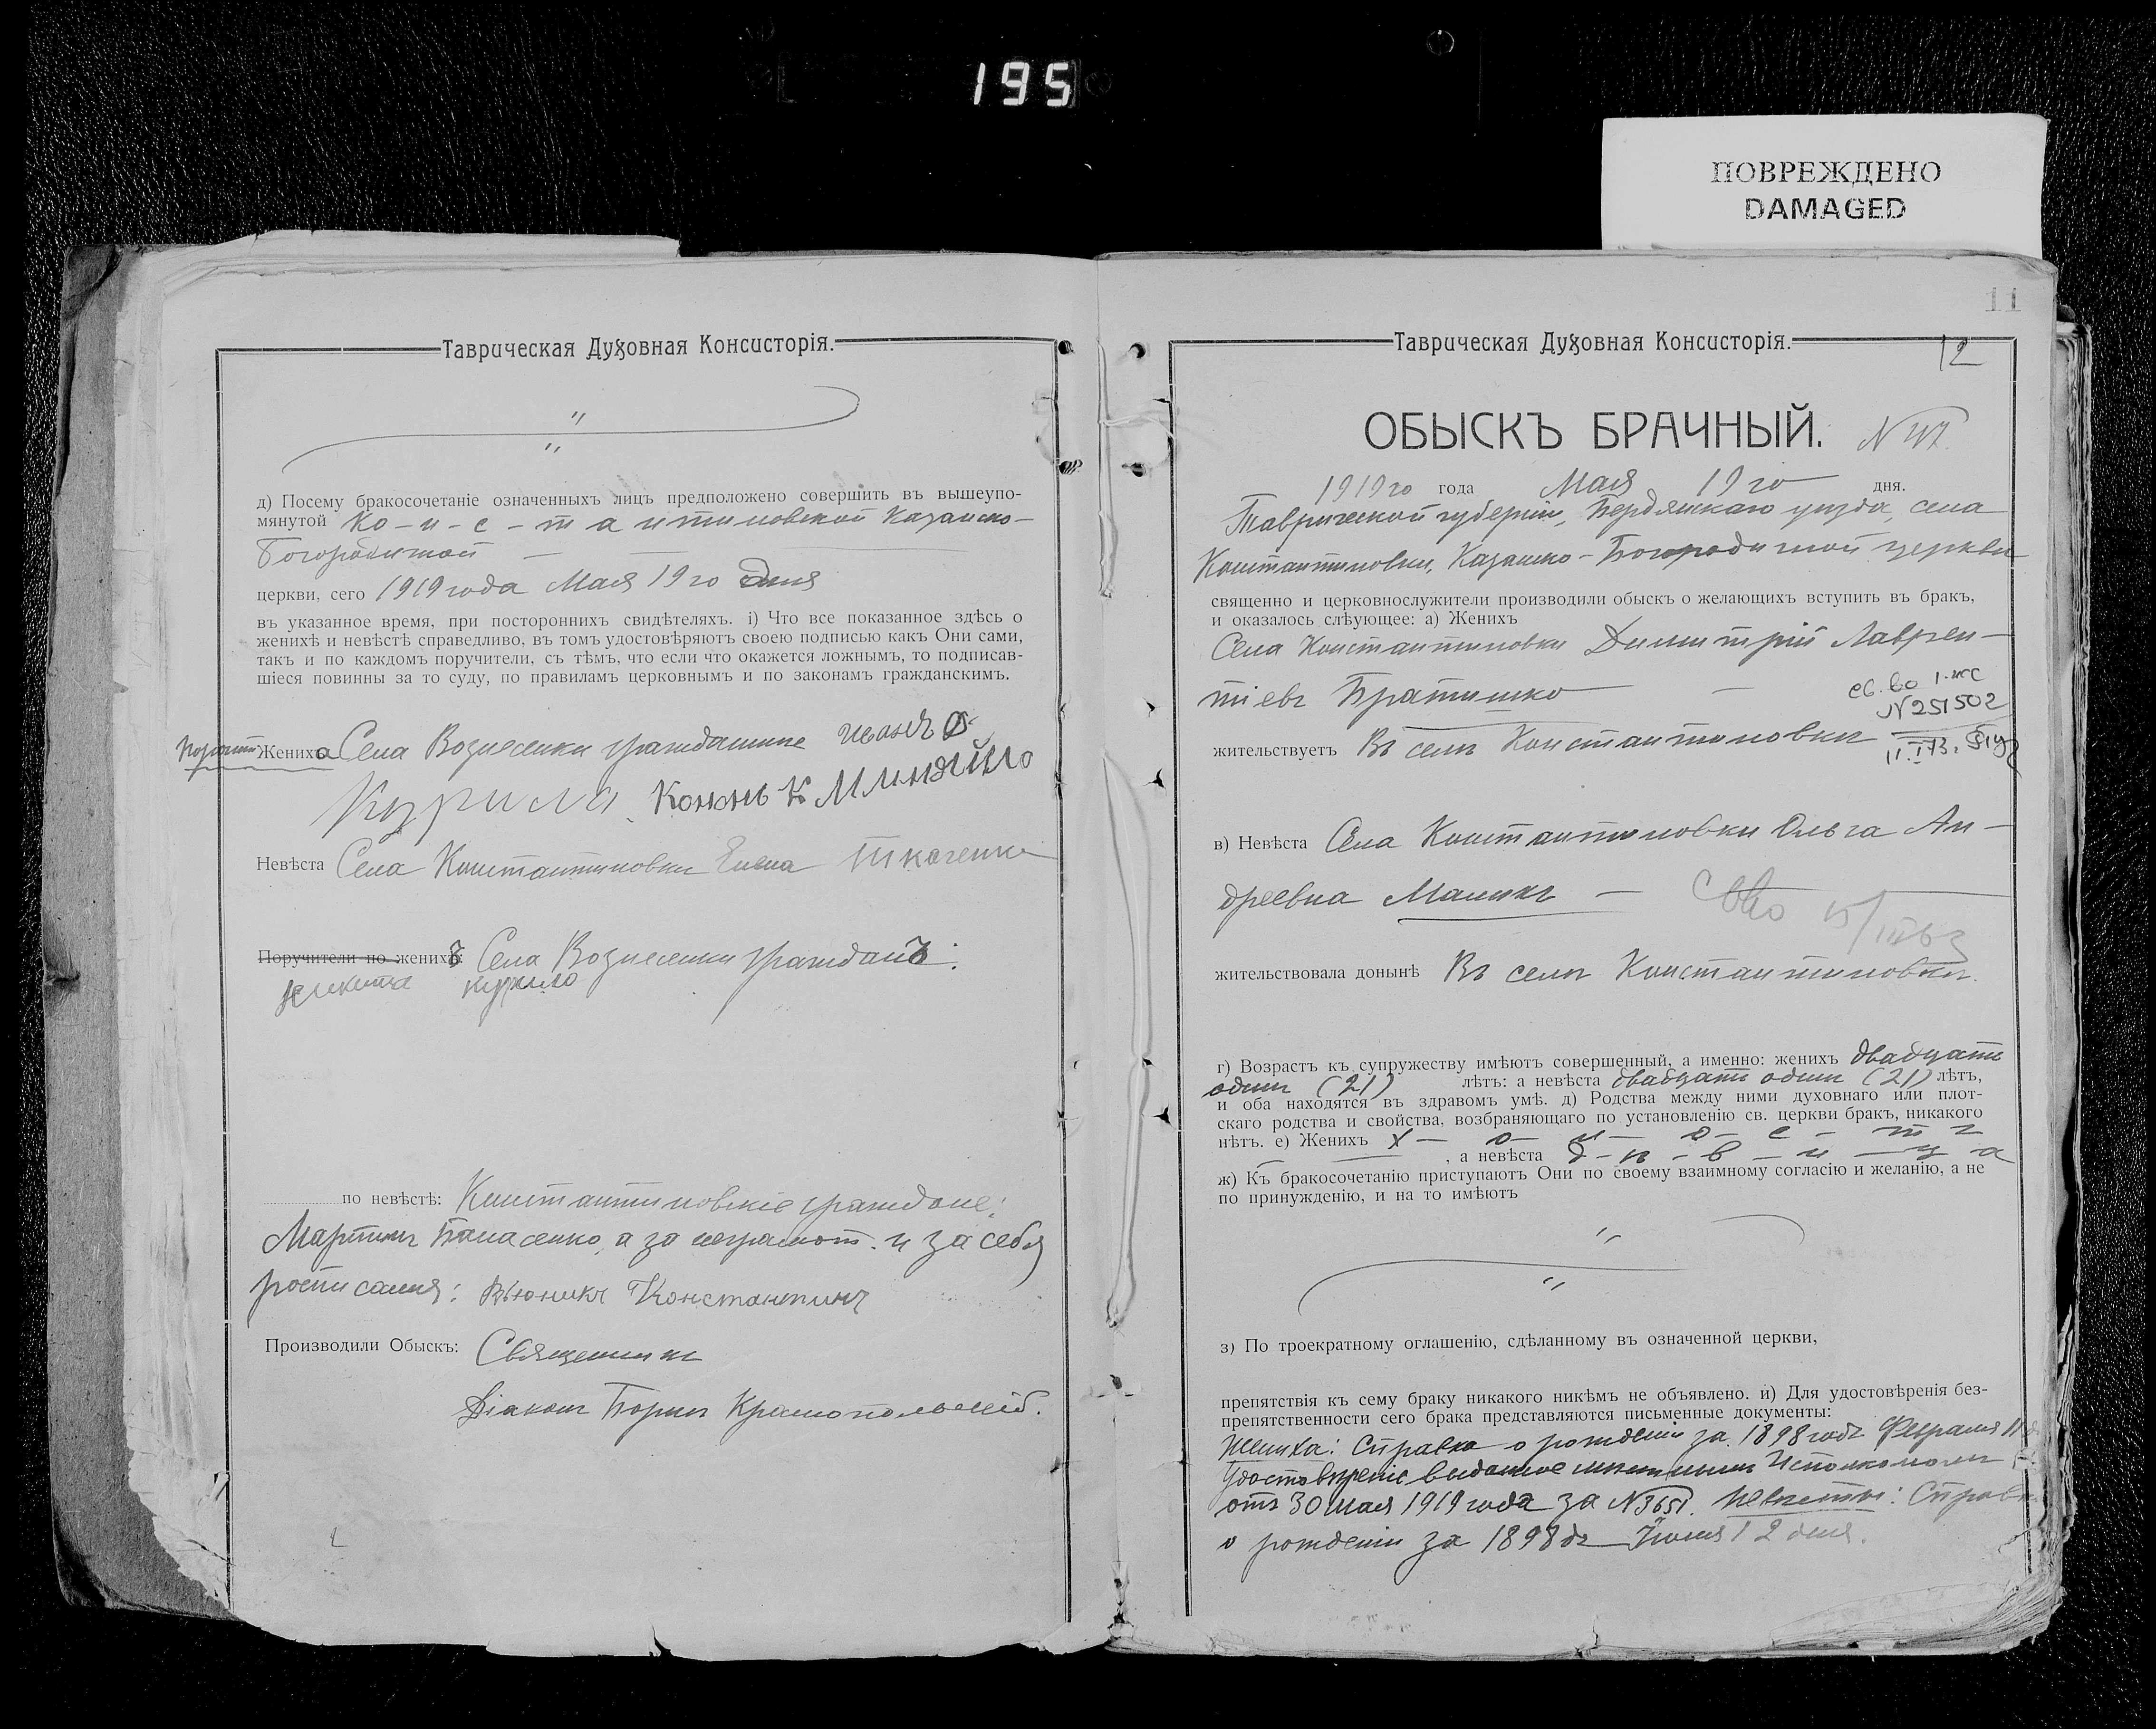 195
ПОВРЕЖДЕНО
DAMAGED
Таврическая Духовная Консисторія.
д) Посему бракосочетаніе означенныхъ лицъ предположено совершить въ вышеупо-
мянутой Ко-н-с-тантиновской Казанско-
Богородичной
церкви, сего 1919 года Мая 19 го дня
въ указанное время, при постороннихъ свидѣтеляхъ. і) Что все показанное здѣсь о
женихѣ и невѣстѣ справедливо, въ томъ удостовѣряютъ своею подписью какъ Они сами,
такъ и по каждомъ поручители, съ тѣмъ, что если что окажется ложнымъ, то подписав-
шіеся повинны за то суду, по правиламъ церковнымъ и по законамъ гражданскимъ.
Жениха Села Вознесенки граждане Иванъ
Курило
Невѣста Села Константиновки Елена Ткаченко
Поручители по женихѣ: Села Вознесенки граждан
Никита Курило
по невѣстѣ: Константиновскіе граждане:
Мартинъ Панасенко, а за неграмот. и за себя
росписался: Вьюникъ Константинъ
Производили Обыскъ: Священникъ
Діаконъ Борисъ Краснопольскій.
11
Таврическая Духовная Консисторія.
12
ОБЫСКЪ БРАЧНЫЙ. N 47.
1919 го года Мая 19 го дня.
Таврической губерніи, Бердянскаго уѣзда, села
Константиновки, Казанско-Богородичной церкви
священно и церковнослужители производили обыскъ о желающихъ вступить въ бракъ,
и оказалось слѣующее: а) Женихъ
Села Константиновки Димитрій Лаврен-
тіевъ Братишко
св. во 1-жс
N 251502
жительствуетъ Въ селѣ Константиновки
в) Невѣста Села Константиновки Ольга Ан-
дреевна Маликъ
жительствовала донынѣ Въ селѣ Константиновки.
г) Возрастъ къ супружеству имѣютъ совершенный, а именно: женихъ двадцать
одинъ (21) лѣтъ: а невѣста двадцать один (21) лѣтъ,
и оба находятся въ здравомъ умѣ. д) Родства между ними духовнаго или плот-
скаго родства и свойства, возбраняющаго по установленію св. церкви бракъ, никакого
нѣтъ. е) Женихъ х-о-л-о-с-т ъ
, а невѣста д-ѣ-в-и-ц а
ж) Къ бракосочетанію приступаютъ Они по своему взаимному согласію и желанію, а не
по принужденію, и на то имѣютъ
з) По троекратному оглашенію, сдѣланному въ означенной церкви,
препятствія къ сему браку никакого никѣмъ не объявлено. и) Для удостовѣренія без-
препятственности сего брака представляются письменные документы:
Жениха: Справка о рожденіи за 1898 годъ Февраля 11
Удостовѣреніе выданное мѣстнымъ Исполкомомъ
отъ 30 мая 1919 года за N 3651. Невѣсты: Справка
о рожденіи за 1898 г. Іюля 12 дня.